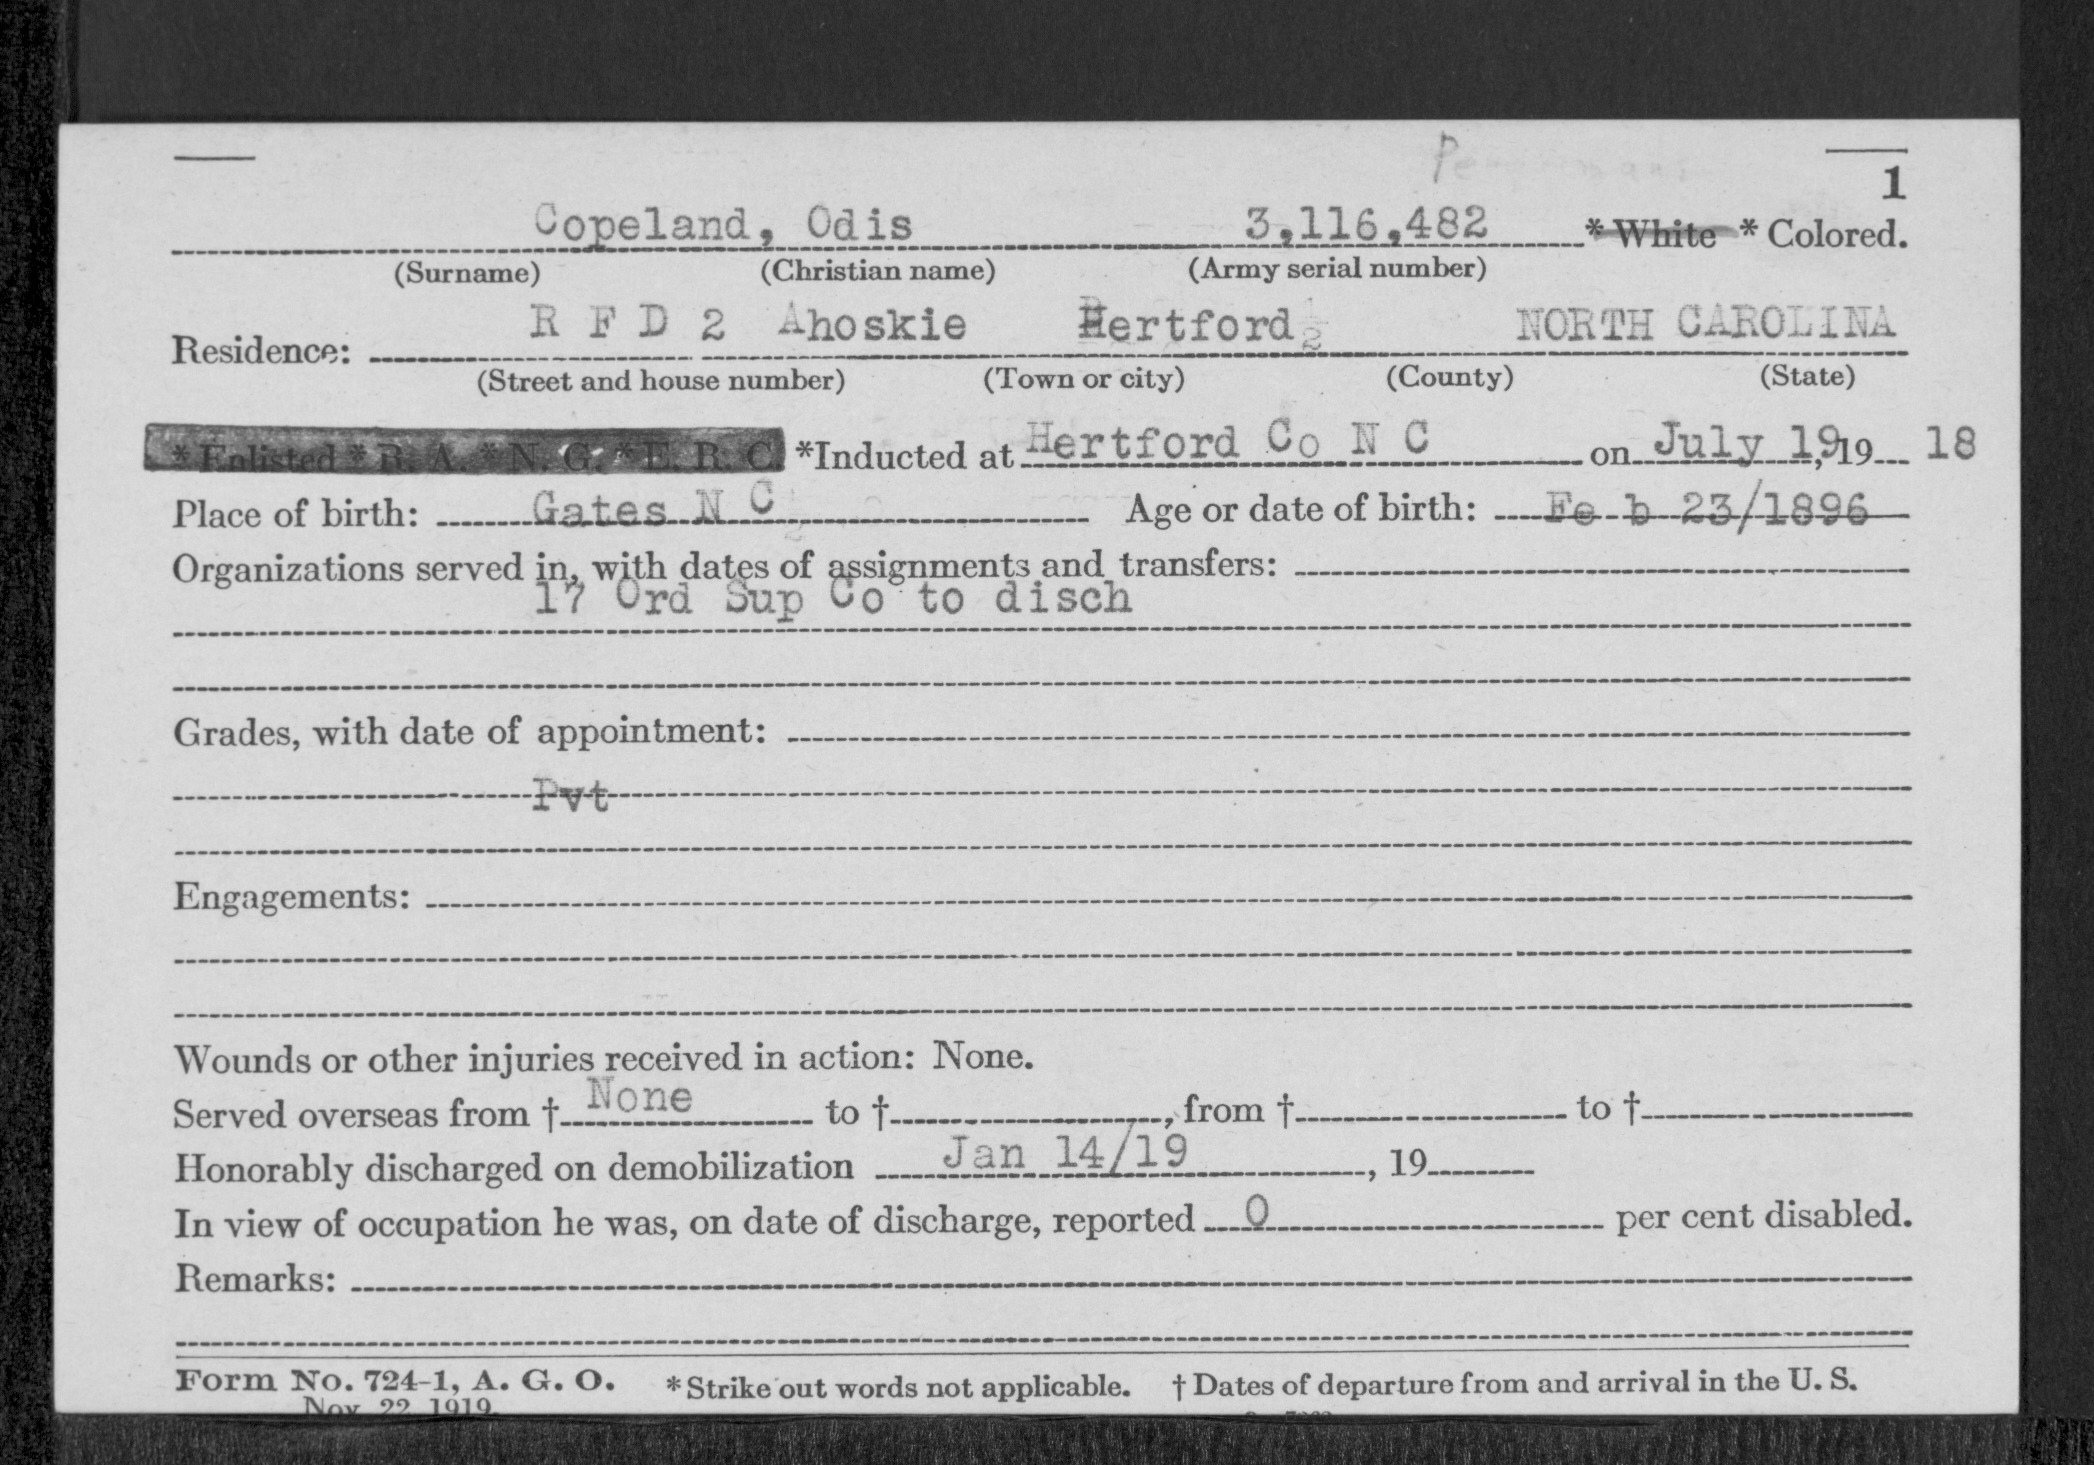 1
Copeland, Odis 3,116,482 * White * Colored.
(Surname) (Christian name) (Army serial number)
Residence: R F D 2 Ahoskie Hertford NORTH CAROLINA
(Street and house number) (Town or city) (County) (State)
* Enlisted * R. A. * N. G. * E. R. C. *Inducted at Hertford Co N C on July 19, 19 18
Place of birth: Gates N C Age or date of birth: Fe b 23/1896
Organizations served in, with dates of assignments and transfers:
17 Ord Sup Co to disch
Grades, with date of appointment:
Pvt
Engagements:
Wounds or other injuries received in action: None.
Served overseas from † None to †, from † to †
Honorably discharged on demobilization Jan 14/19, 19
In view of occupation he was, on date of discharge, reported 0 per cent disabled.
Remarks:
Form No. 724-1, A. G. O. * Strike out words not applicable. † Dates of departure from and arrival in the U. S.
Nov. 22, 1919.